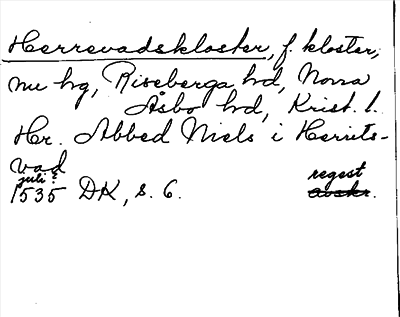 Herrevadskloster, f. kloster,
nu hg, Riseberga sd, Norra
Åsbo hd, Krist. l.
Hr. Abbed Niels i Herrits-
vad
juli?
1535 DK, s. 6. regest
avskr.